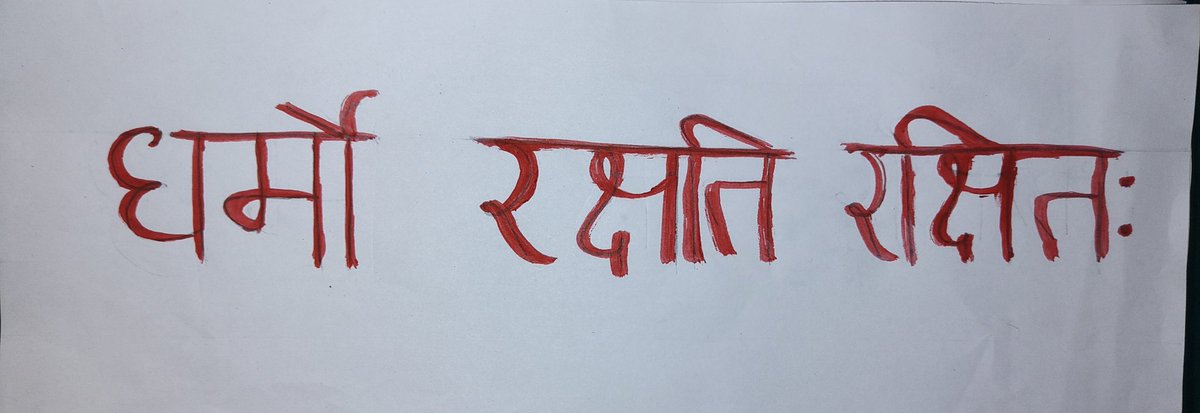 धर्मो रक्षति रक्षितः